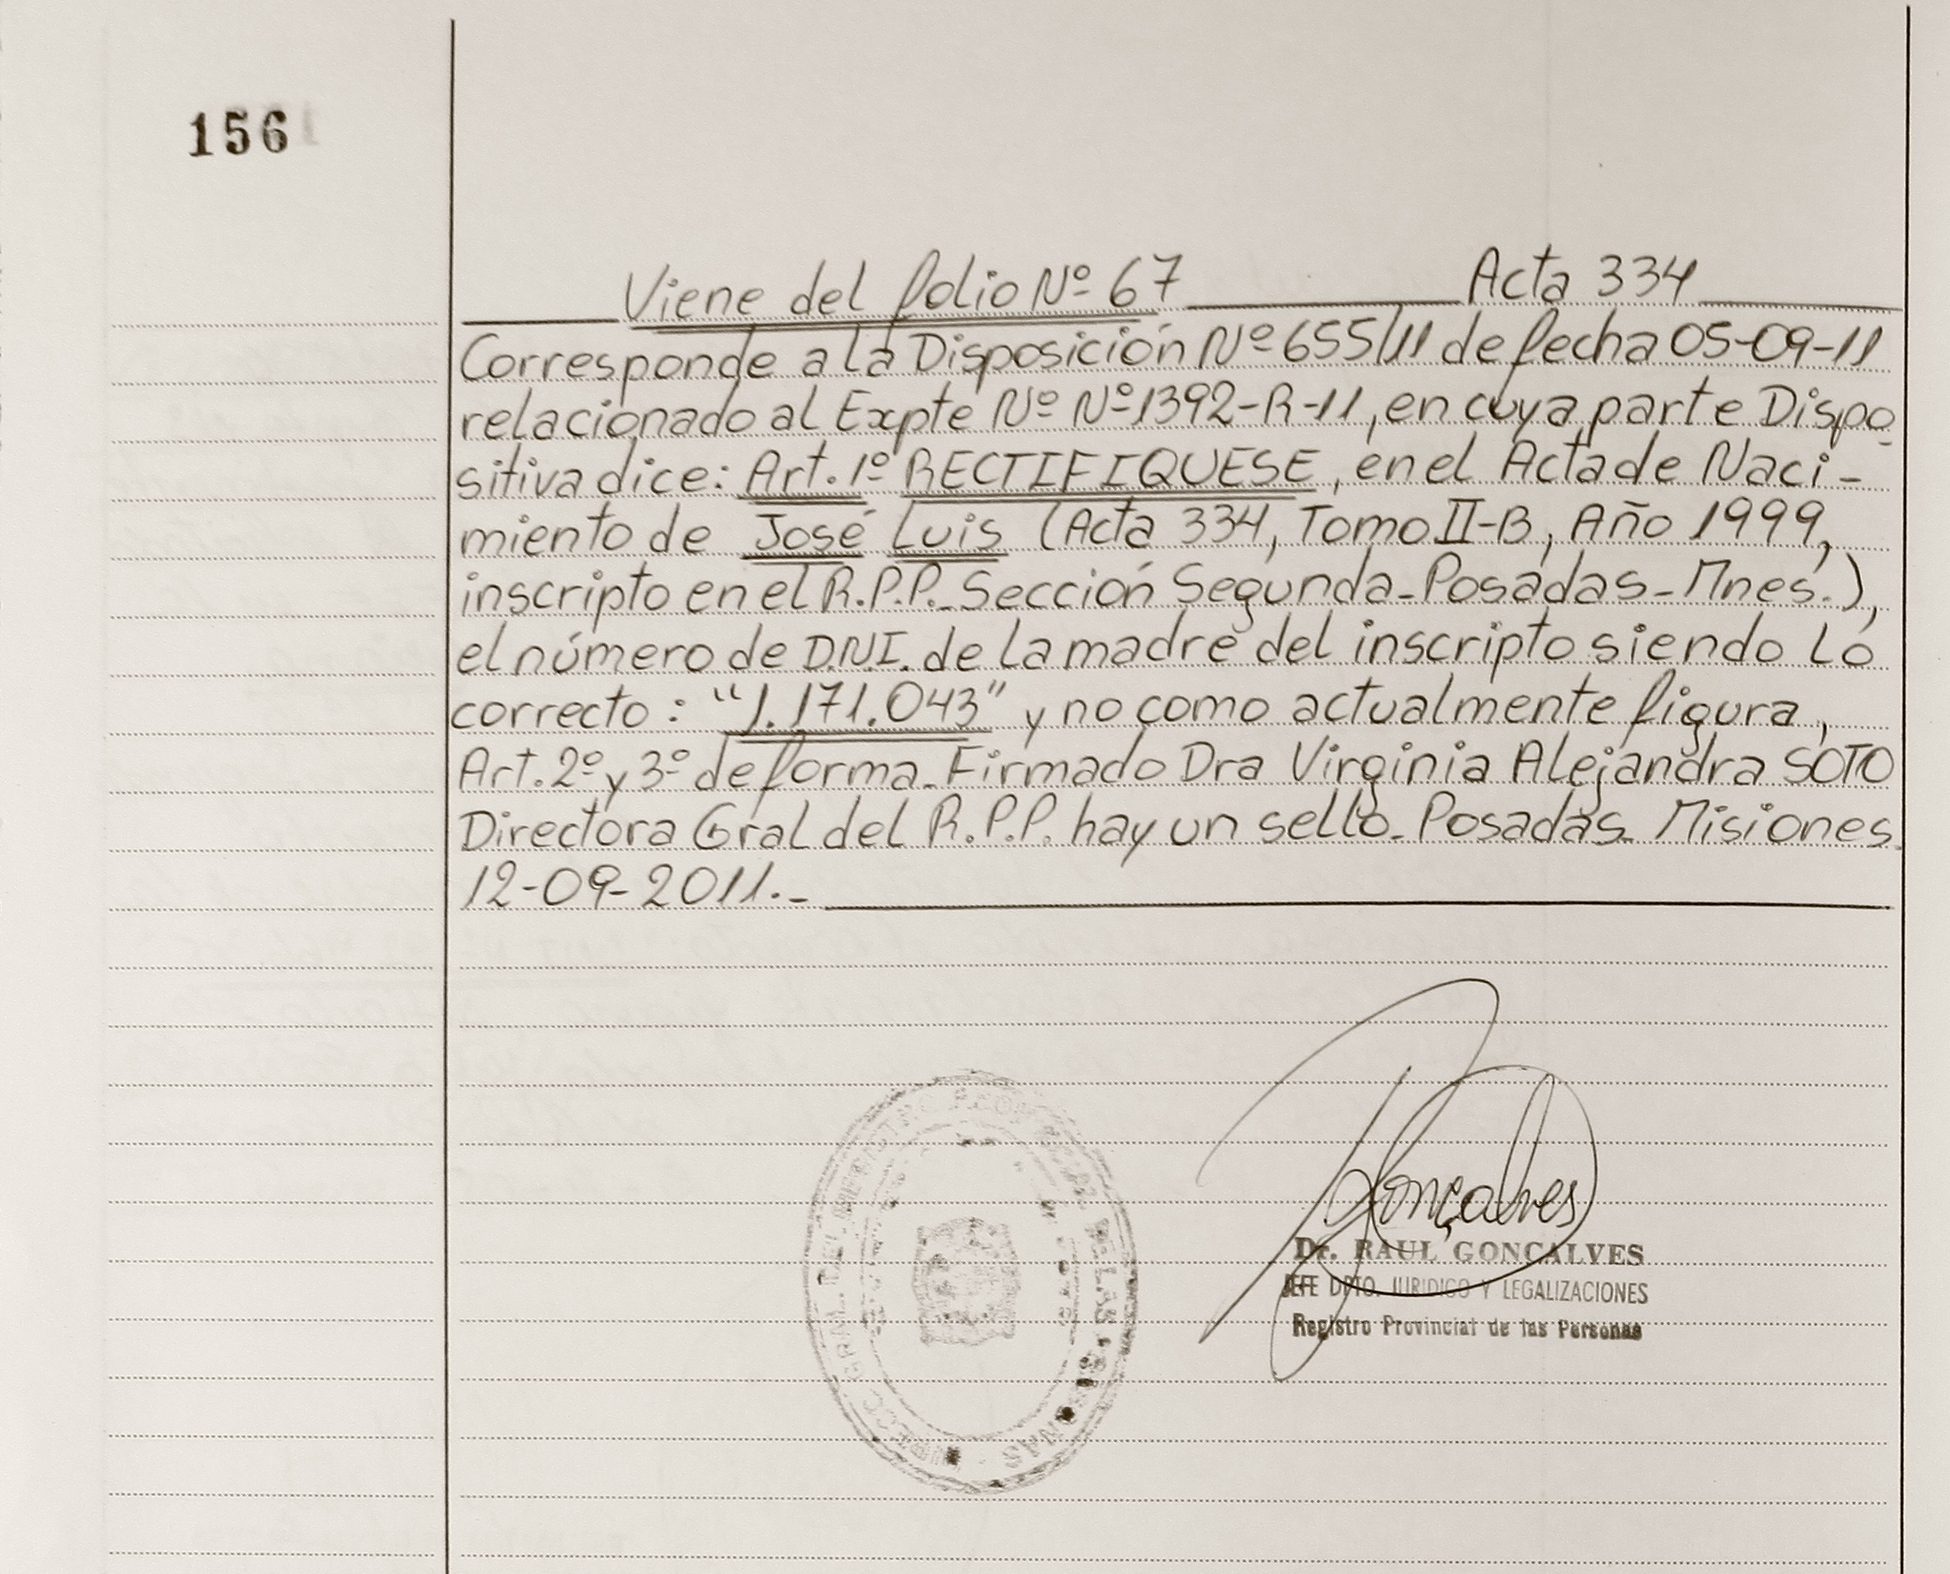 156
Viene del folio Nº 67 Acta 334
Corresponde a la Disposición Nº 655/11 de fecha 05-09-11
relacionado al Expte Nº Nº 1392-R-11, en cuya parte Dispo
sitiva dice: Art. 1º RECTIFIQUESE, en el Acta de Naci-
miento de José Luis (Acta 334, Tomo II-B, Año 1999,
inscripto en el R.P.P. Sección Segunda - Posadas - Mnes.),
el número de D.N.I. de la madre del inscripto siendo lo
correcto: "1.171.043" y no como actualmente figura,
Art. 2º y 3º de forma - Firmado Dra Virginia Alejandra SOTO
Directora Gral del R.P.P. hay un sello - Posadas - Misiones
12-09-2011.-
Gonçalves
Dr. RAUL GONÇALVES
JEFE DPTO. JURIDICO Y LEGALIZACIONES
Registro Provincial de las Personas
GRAL. DEL REGISTRO DE LAS